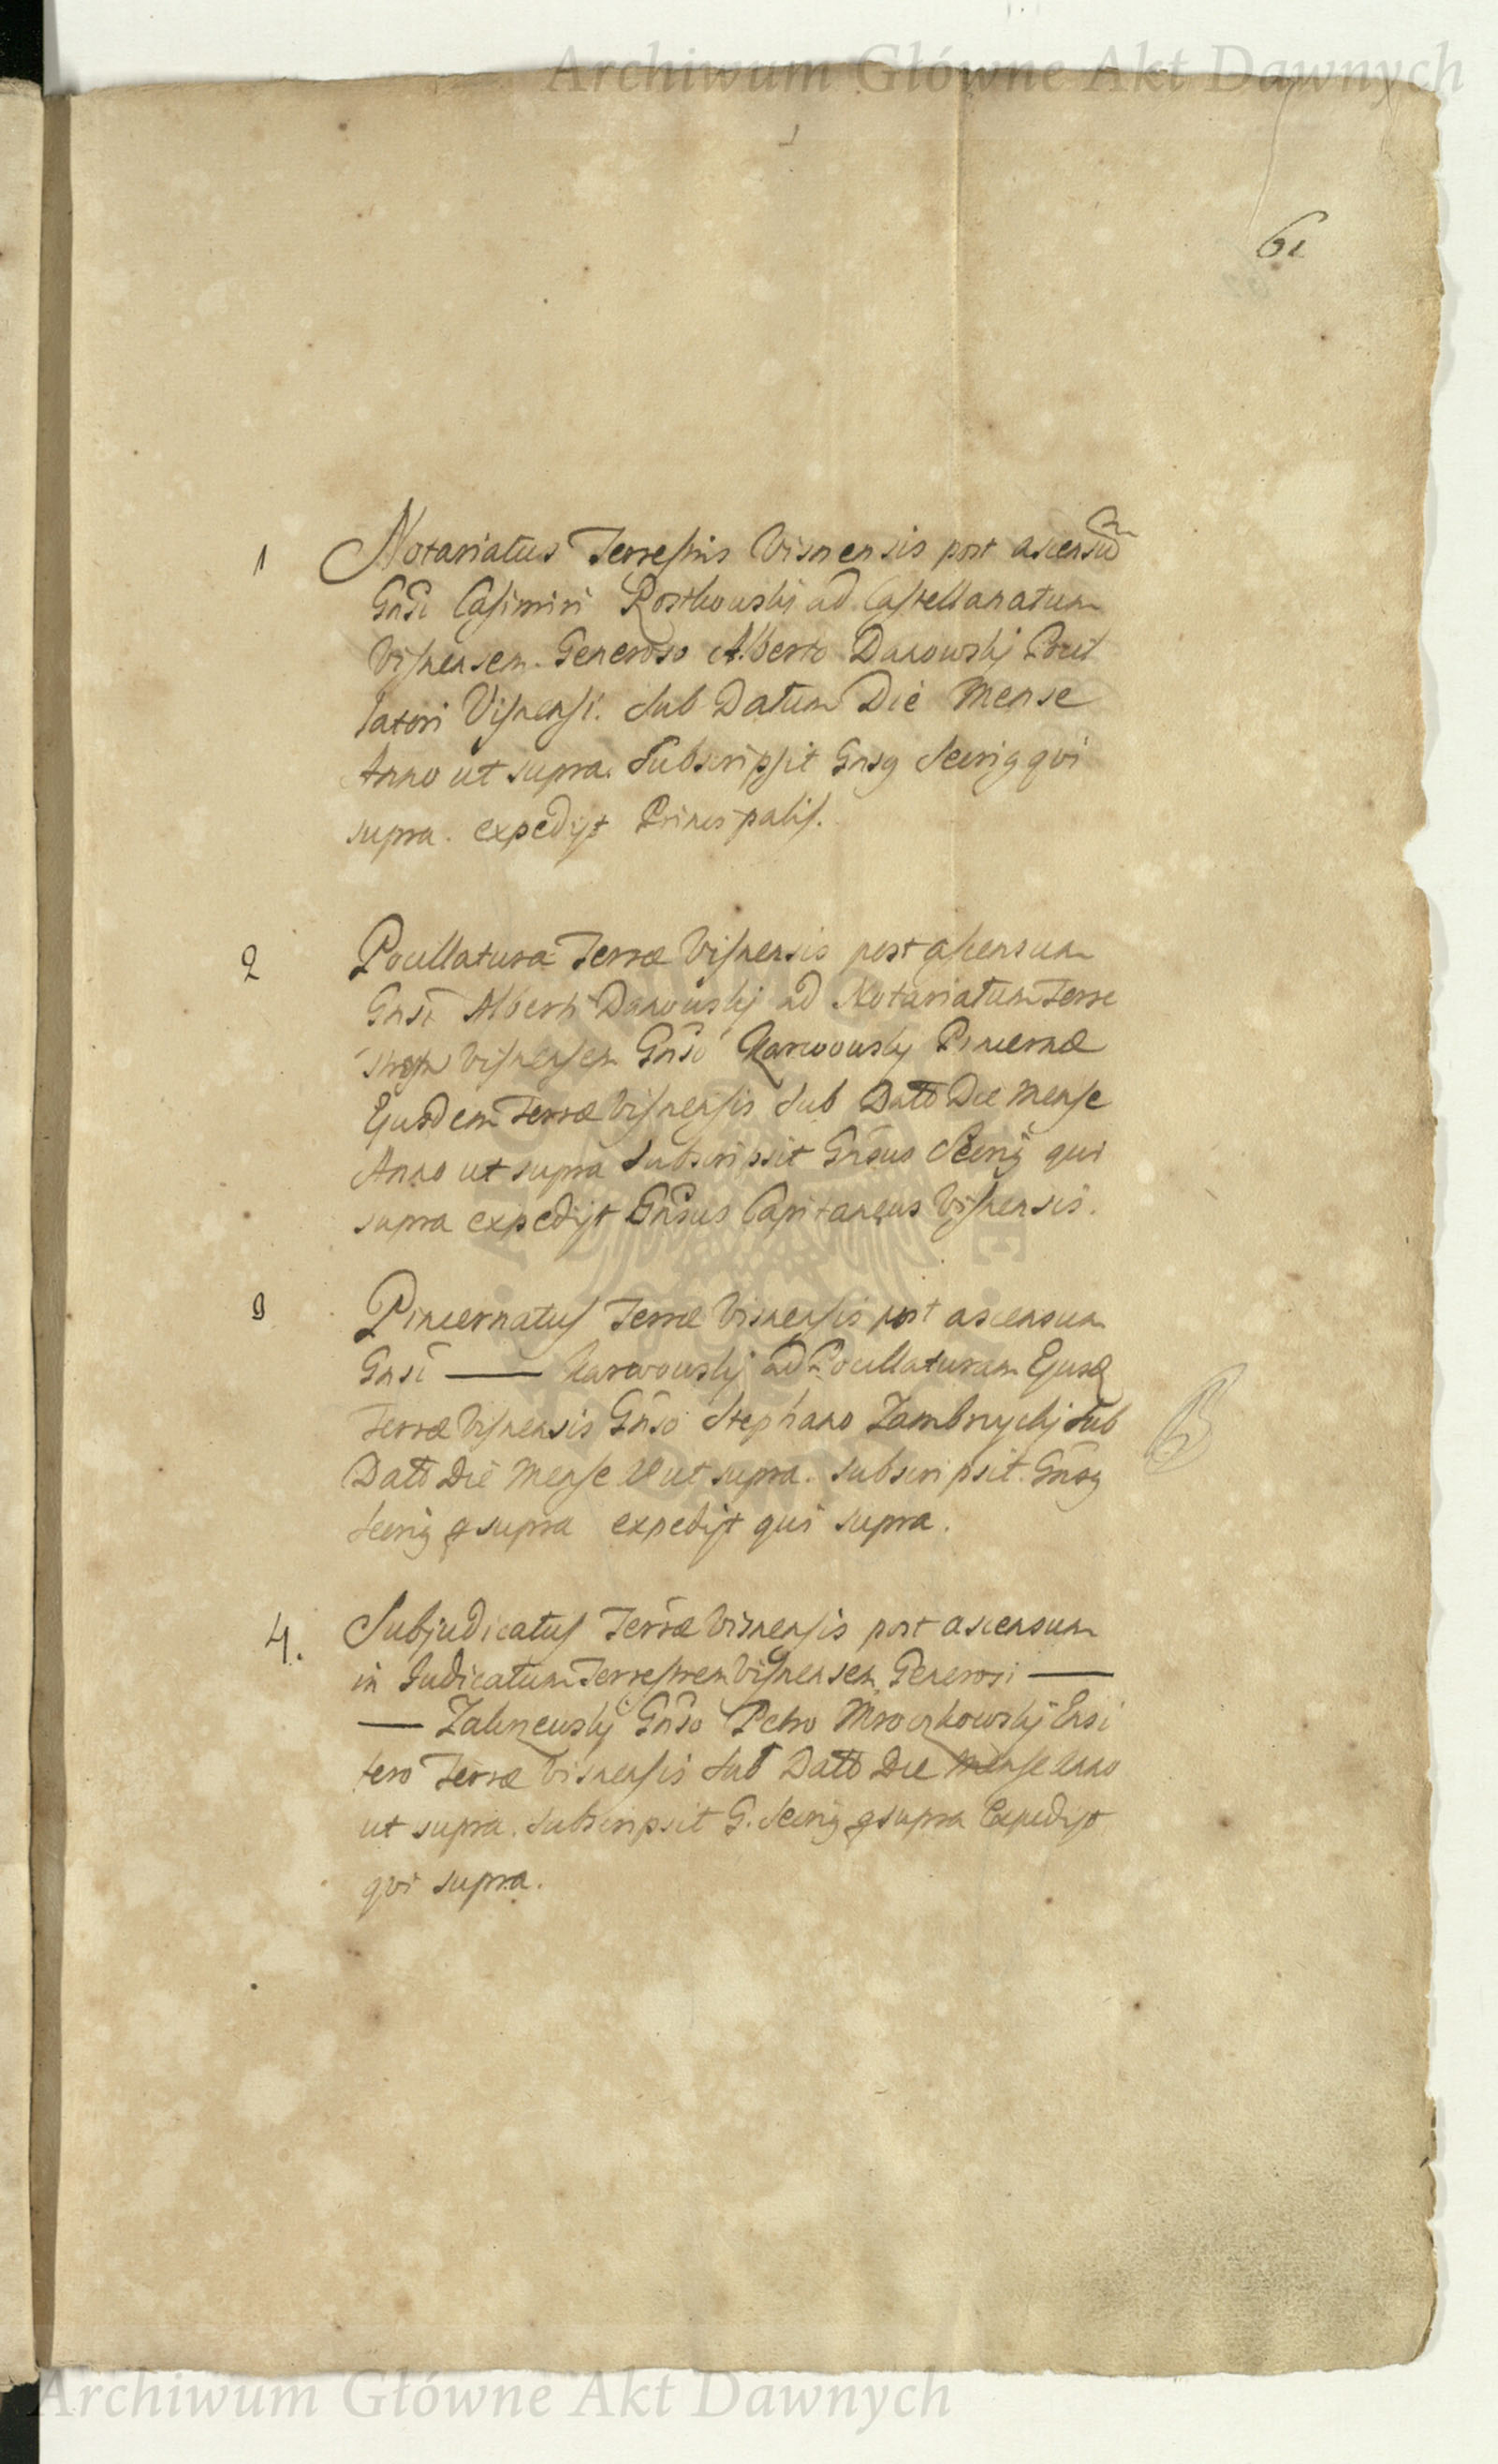 Archiwum Główne Akt Dawnych
61
1 Notariatus Terrestris Visnensis post ascensũ
Gñsi Casimiri Rostkowskj ad Castellanatum
Visnensem. Generoso Alberto Danowskj Pocil
latori Visnensi. Sub Datum Die Mense
Anno ut supra. Subscripsit Gnsg Secrig qvi
supra. expedijt Principalis.
2 Pocillatura Terræ Visnensis post ascensum
Gñsi Alberti Danowskj ad Notariatum Terre
strem Visnensem Gñso Karwowskj Pincernæ
Ejusdem Terræ Visnensis Sub Datto Die Mense
Anno ut supra Subscripsit Gñsus Secrig qui
supra expedijt Gñsus Capitaneus Visnensis.
3 Pincernatus Terræ Visnensis post ascensum
Gñsi — Karwowskj ad Pocillaturam Ejusd
Terræ Visnensis Gñso Stephano Zambrzyckj Sub
Datto Die Mense ut supra. subscripsit Gñsg
Secrig q supra expedijt qui supra.
4. Subjudicatus Terræ Visnensis post ascensum
in Judicatum Terrestrem Visnensem Generosi —
— Zalinewskj Gñso Petro Mroczkowskj Ensi
fero Terræ Visnensis Sub Datto Die Mense Anno
ut supra. Subscripsit G. Secrig q supra Expedijt
qvi supra.
Archiwum Główne Akt Dawnych